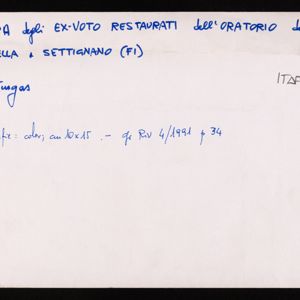 A degli EX-VOTO RESTAURATI dell'ORATORIO de
ELLA a SETTIGNANO (FI)
ITAF
color; cm 10x15 .- Riv 4/1991 p 34